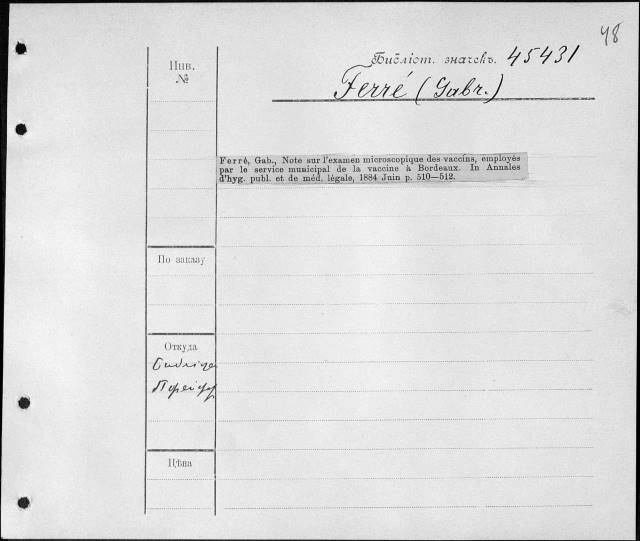 48
Инв.
№
Библіот. значекъ. 45431
Ferré (Gabr.)
Ferré, Gab., Note sur l'examen microscopique des vaccins, employés
par le service municipal de la vaccine à Bordeaux. In Annales
d'hyg. publ. et de méd. légale, 1884 Juin p. 510—512.
По заказу
Откуда
Цѣна